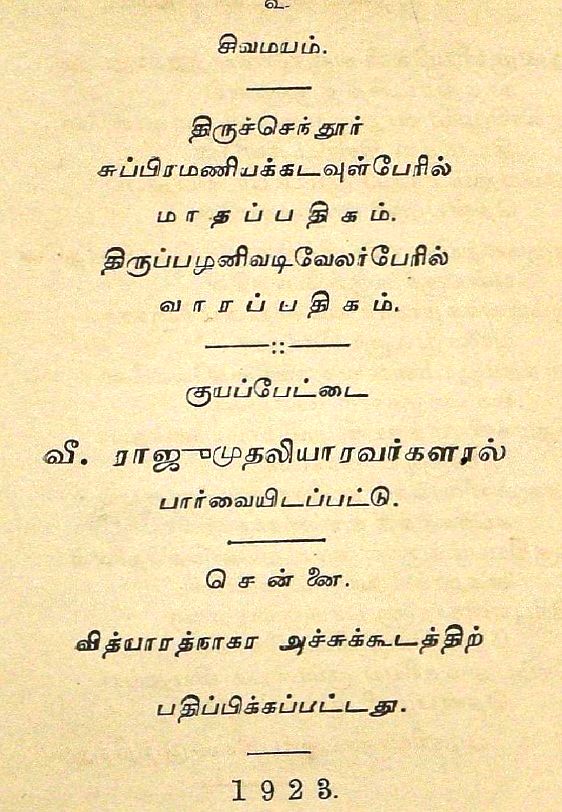 உ
சிவமயம்.
திருச்செந்தூர்
சுப்பிரமணியக்கடவுள்பேரில்
மாதப்பதிகம்.
திருப்பழனிவடிவேலர்பேரில்
வாரப்பதிகம்.
குயப்பேட்டை
வீ. ராஜுமுதலியாரவர்களால்
பார்வையிடப்பட்டு.
சென்னை.
வித்யாரத்நாகர அச்சுக்கூடத்திற்
பதிப்பிக்கப்பட்டது.
1923.